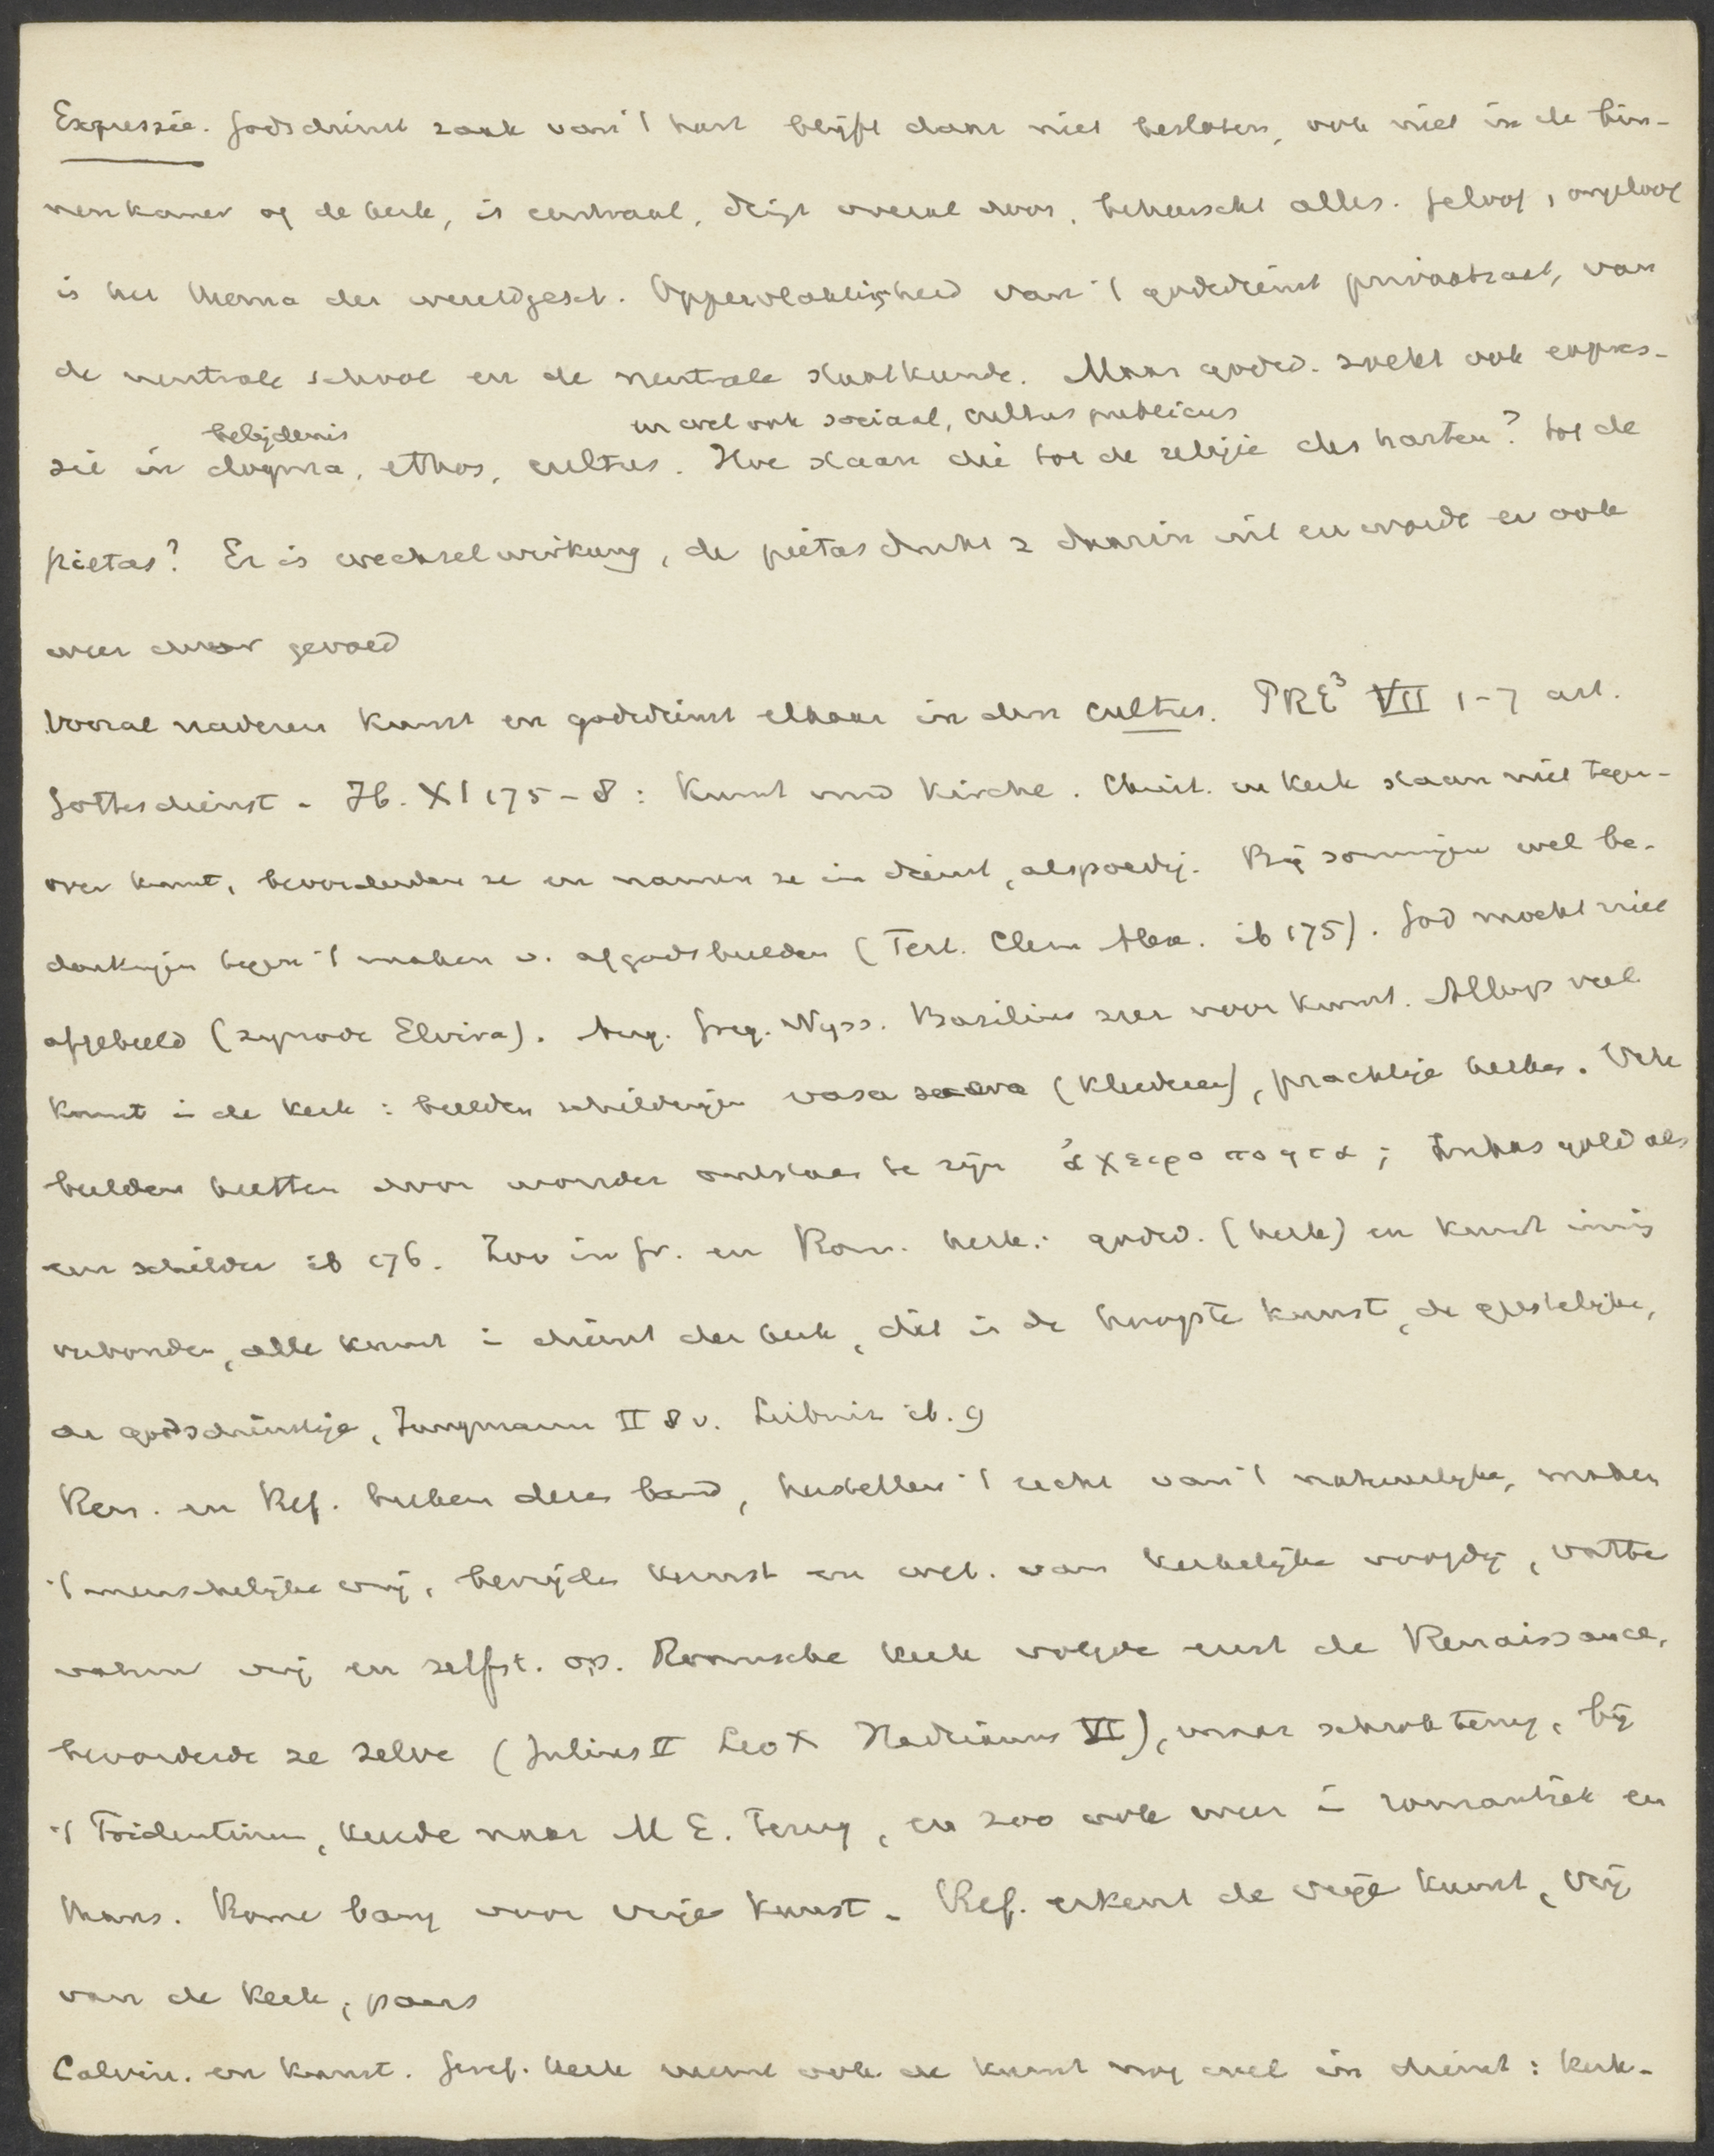 Expressie. Godsdienst zaak van 't hart blijft daar niet besloten, ook niet in de bin-
nenkamer of de kerk, is centraal, dringt overal door, beheerscht alles. Geloof, ongeloof
is het thema der wereldgesch. Oppervlakkigheid van 't godsdienst privaatzaak, van
de neutrale school en de neutrale staatkunde. Maar godsd. zoekt ook expres-
belijdenis en wel ook sociaal, cultus publicus
sie in dogma, ethos, cultus. Hoe staan die tot de religie des harten? tot de
pietas? Er is wechselwirkung, de pietas drukt z daarin uit en wordt er ook
weer door gevoed
Vooral naderen kunst en godsdienst elkaar in den cultus. PRE³ VII 1-7 art.
Gottesdienst - Ib. XI 175-8: Kunst und Kirche. Christ. en kerk staan niet tegen-
over kunst, bevorderden ze en namen ze in dienst, alspoedig. Bij sommigen wel be-
denkingen tegen 't maken v. afgodsbeelden (Tert. Clem Alex. ib 175). God mocht niet
afgebeeld (synode Elvira). Aug. Greg. Nyss. Basilius zeer voor kunst. Allengs veel
kunst in de kerk: beelden schilderijen vasa sacra (kleederen), prachtige kerken. Vele
beelden heetten door wonder ontstaan te zijn ἀχειροποητα; Lukas gold als
een schilder ib 176. Zoo in Gr. en Rom. kerk: godsd. (kerk) en kunst innig
verbonden, alle kunst in dienst der kerk, dit is de hoogste kunst, de geestelijke,
de godsdienstige, Jungmann II 8 v. Leibniz ib. 9
Ren. en Ref. breken dezen band, herstellen 't recht van 't natuurlijke, maken
't menschelijke vrij, bevrijden kunst en wet. van kerkelijke voogdij, vatten
vrij en zelfst. op. Roomsche kerk volgde eerst de Renaissance,
bevorderde ze zelve (Julius II Leo X Hadrianus VI), maar schrok terug, bij
't Tridentinum, keerde naar M E. terug, en zoo ook weer in romantiek en
thans. Rome bang voor vrije kunst - Ref. erkent de vrije kunst, vrij
van de kerk, paus
Calvin. en kunst. Geref. kerk neemt ook de kunst nog wel in dienst: kerk-